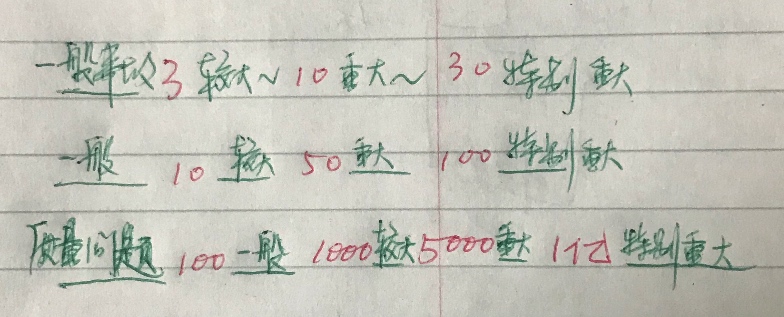 一般事故 3 较大~ 10 重大~ 30 特别重大
一般 10 较大 50 重大 100 特别重大
质量问题 100 一般 1000 较大 5000 重大 1亿 特别重大